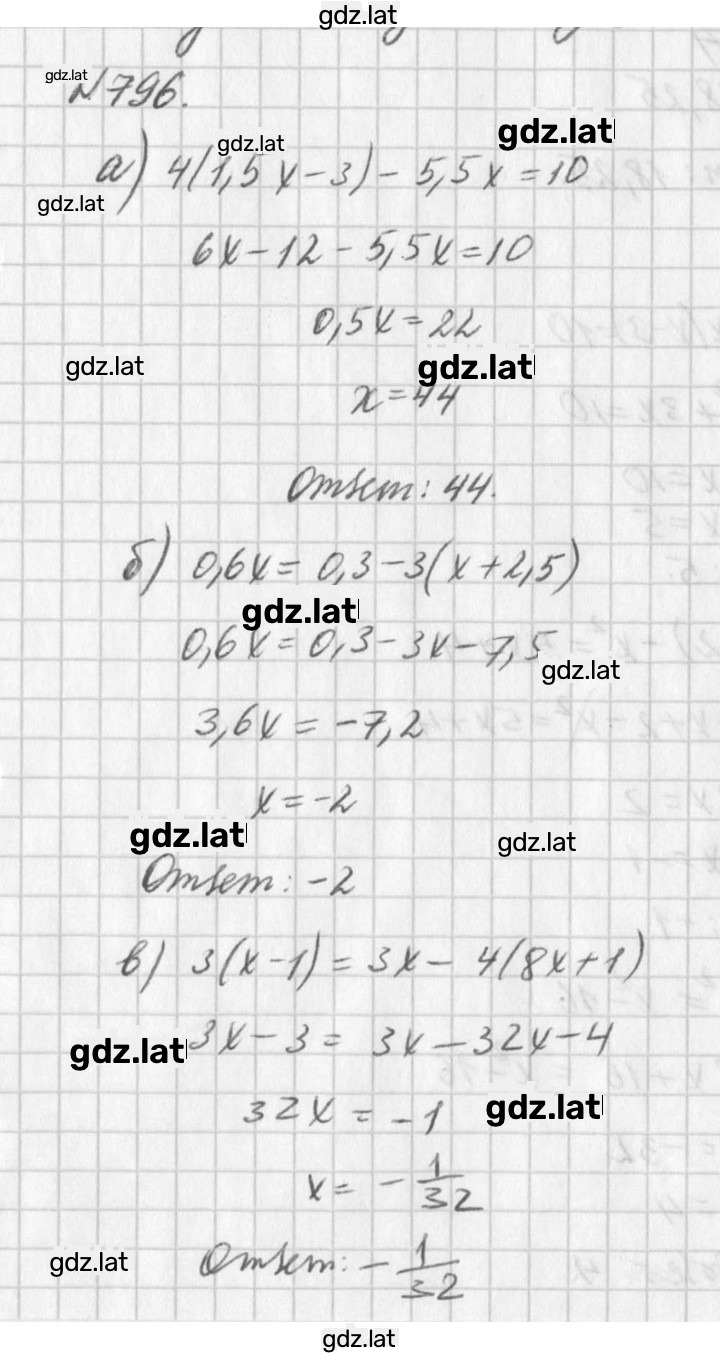 gdz.lat
gdz.lat
№796.
gdz.lat
gdz.lat
а) 4(1,5x-3)- 5,5x=10
gdz.lat
6x-12-5,5x=10
0,5x=22
gdz.lat
gdz.lat
x=44
Ответ: 44.
б) 0,6x= 0,3-3(x+2,5)
gdz.lat
0,6x=0,3-3x-7,5
gdz.lat
3,6x=-7,2
x=-2
gdz.lat
gdz.lat
Ответ: -2
в) 3(x-1)=3x- 4(8x+1)
gdz.lat
3x-3= 3x-32x-4
32x=-1
gdz.lat
x= -1/32
gdz.lat
Ответ: -1/32
gdz.lat